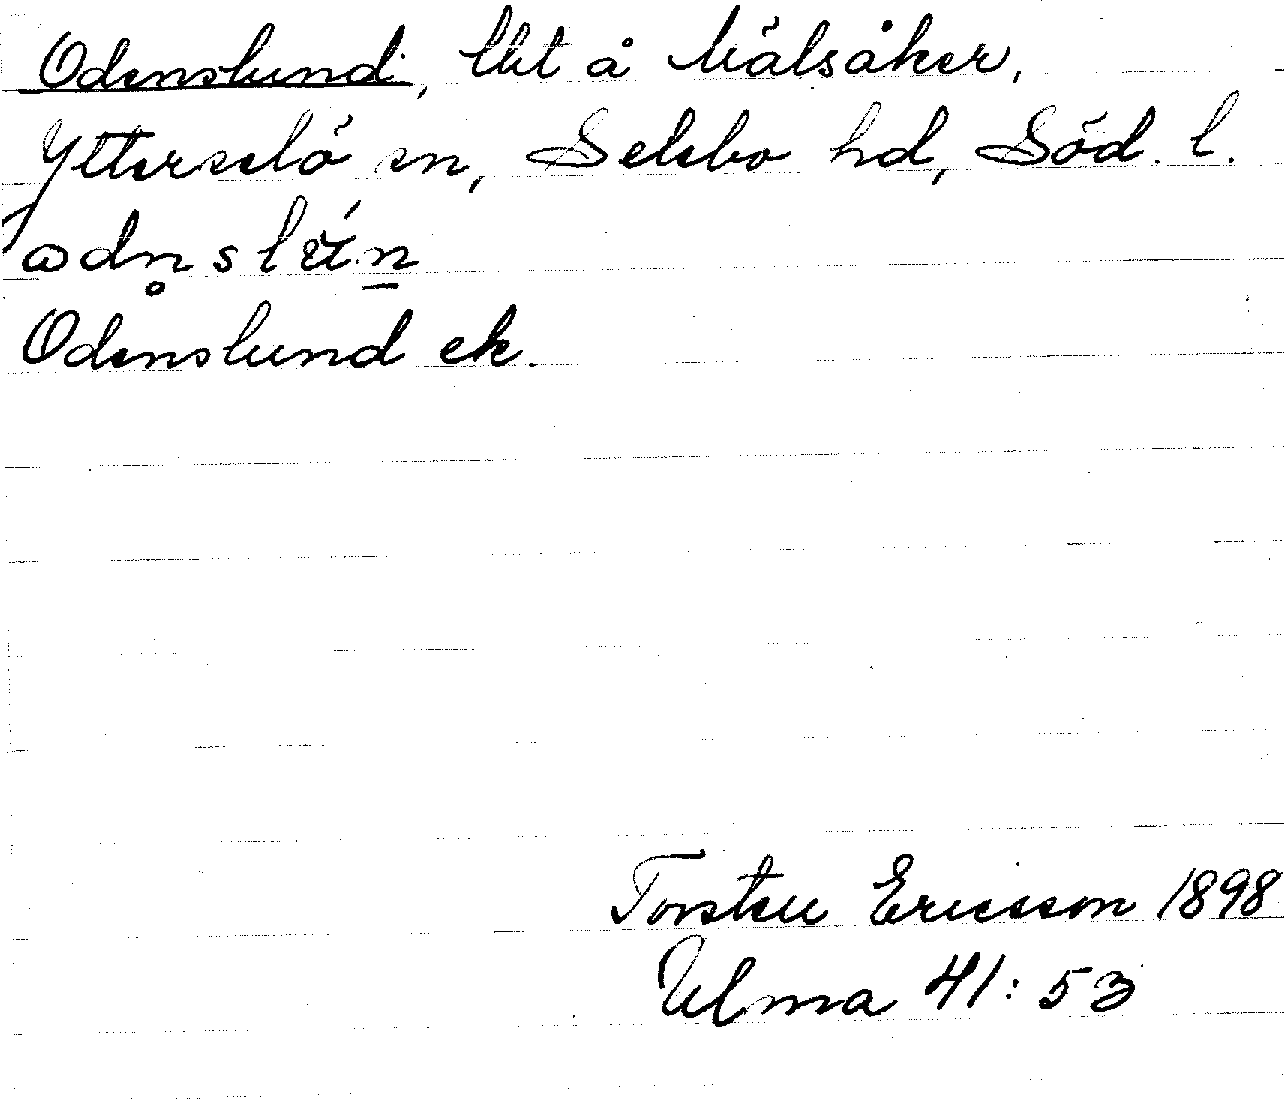 Odenslund, lht å Mälsåker,
Ytterselö sn, Selebo hd, Söd. l.
ωdn̥slún̲
Odenslund ek.
Torsten Ericsson 1898
Ulma 41:53